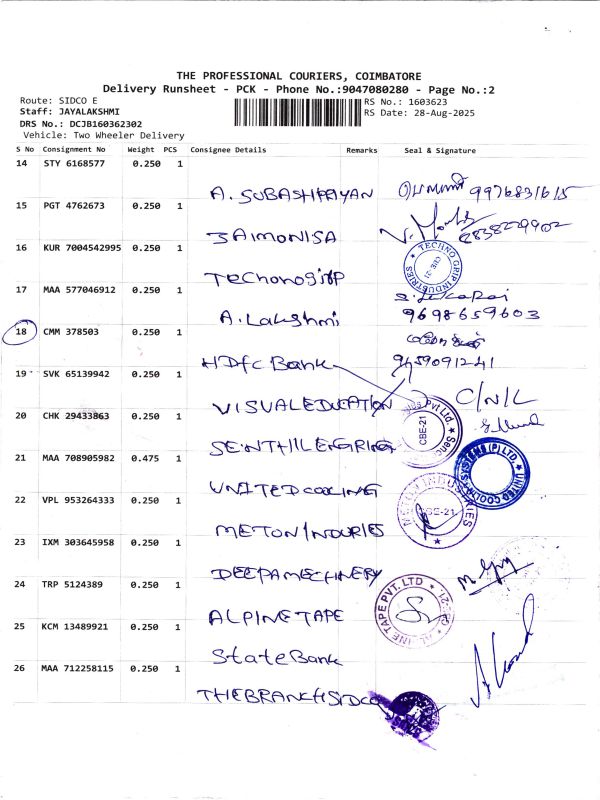 THE PROFESSIONAL COURIERS, COIMBATORE
Delivery Runsheet - PCK - Phone No.:9047080280 - Page No.:2
Route: SIDCO E
RS No.: 1603623
Staff: JAYALAKSHMI
RS Date: 28-Aug-2025
DRS No.: DCJB160362302
Vehicle: Two Wheeler Delivery
S No Consignment No Weight PCS Consignee Details Remarks Seal & Signature
14 STY 6168577 0.250 1
A. SUBASHPRIYAN 9976831615
15 PGT 4762673 0.250 1
JAIMONISA
16 KUR 7004542995 0.250 1
TECHNO GRIP INDUSTRIES
17 MAA 577046912 0.250 1
A. Lakshmi 9698659603
18 CMM 378503 0.250 1
HDfc Bank 9659091241
19 SVK 65139942 0.250 1
VISUAL EDUCATION C/N/L
20 CHK 29433863 0.250 1
Pvt Ltd. CBE-21
SENTHIL ENGRING
21 MAA 708905982 0.475 1
UNITED COOLING SYSTEMS (P) LTD.
UNITED COOLING
22 VPL 953264333 0.250 1
INDUSTRIES
23 IXM 303645958 0.250 1
DEEPAMECHINERY
24 TRP 5124389 0.250 1
ALPINE TAPE PVT. LTD
ALPINE TAPE
25 KCM 13489921 0.250 1
State Bank
26 MAA 712258115 0.250 1
THE BRANCH SIDCO